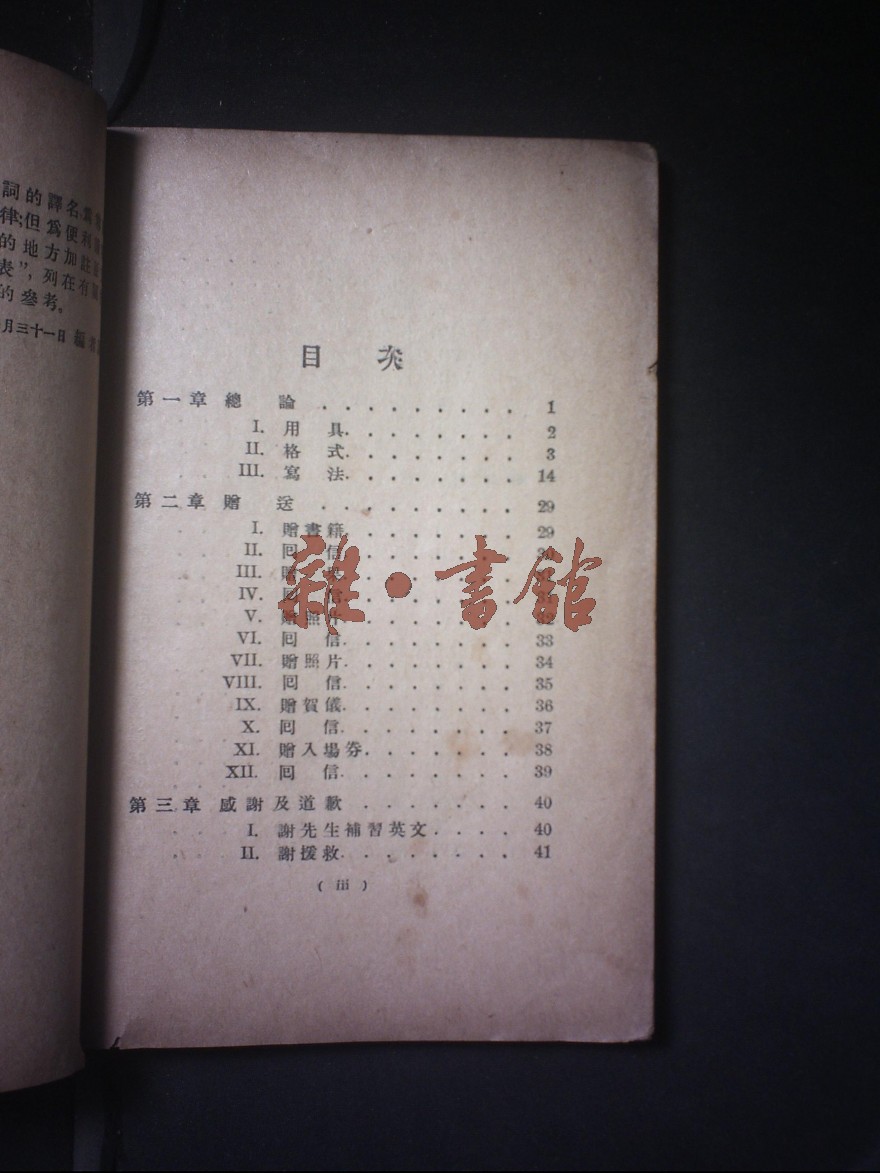 詞的譯名,爲
律;但爲便利
的地方加註
表”,列在有
的參考。
月三十一日 編者
目 次
第一章 總 論 . . . . . . . . . 1
I. 用 具. . . . . . . . 2
II. 格 式. . . . . . . . 3
III. 寫 法. . . . . . . . 14
第二章 贈 送 . . . . . . . . . 29
I. 贈書籍. . . . . . . . 29
II. 囘 信. . . . . . . . 30
III. 贈
IV. 囘 信
V. 贈照片. . . . . . . . 32
VI. 囘 信. . . . . . . . 33
VII. 贈照片. . . . . . . . 34
VIII. 囘 信. . . . . . . . 35
IX. 贈賀儀. . . . . . . . 36
X. 囘 信. . . . . . . . 37
XI. 贈入場券. . . . . . . 38
XII. 囘 信. . . . . . . . 39
第三章 感謝及道歉 . . . . . . . 40
I. 謝先生補習英文. . . . 40
II. 謝援救. . . . . . . . 41
( iii )
雜·書館